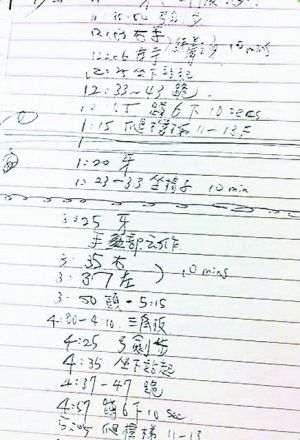 11:35-50 弓箭步
12:03 右手
12:06 左手 10 mins
12:25 坐下站起
12:33-43 跪
12:45 蹲6下10 secs
1:15 爬樓梯 11-13F
1:20 牙
1:23-33 坐椅子 10 min
3:25 牙
手 部動作
3:35 右
3:37 左 10 mins
3:50 頭 - 5:15
4:00-4:10 三角板
4:25 弓箭步
4:35 坐下站起
4:37-47 跪
4:57 蹲6下10 sec
5:05 爬樓梯 11-13